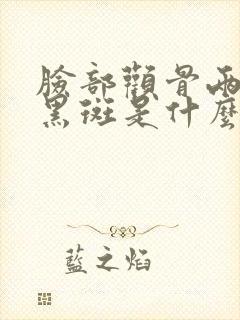 臉部顴骨兩
黑斑是什麼
藍之焰